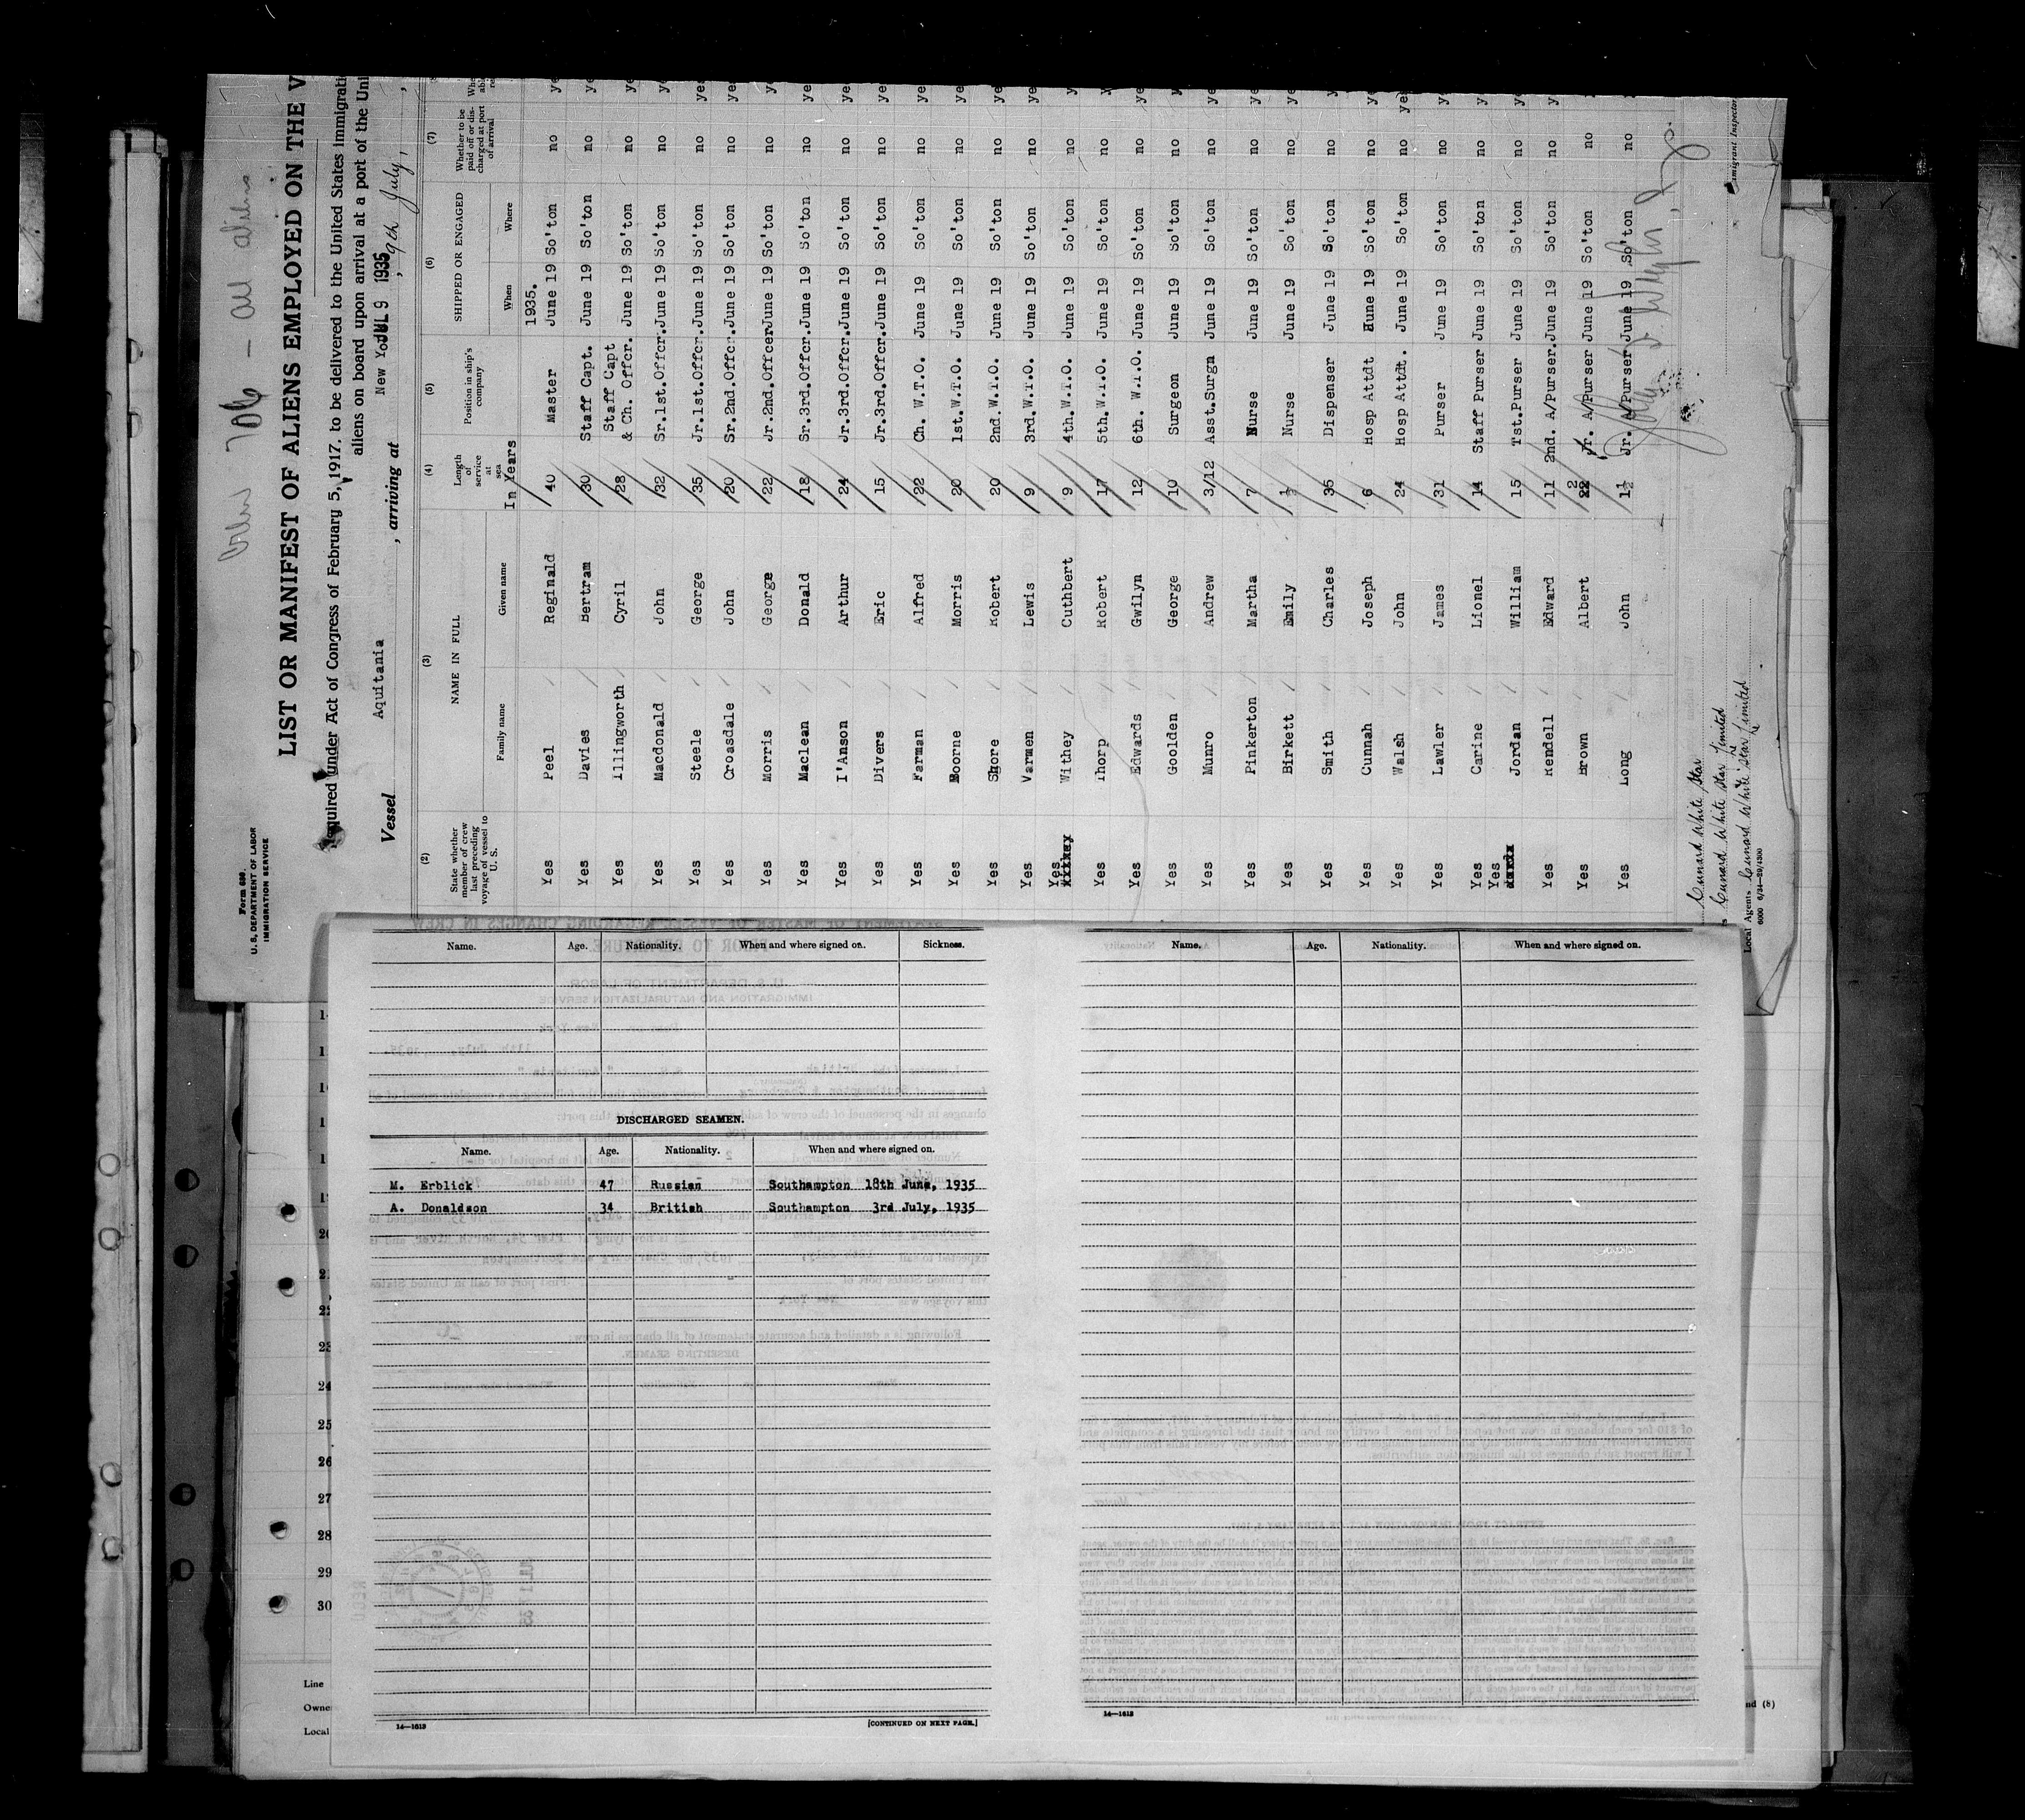 Form 689.
U. S. DEPARTMENT OF LABOR
IMMIGRATION SERVICE
all aliens
LIST OR MANIFEST OF ALIENS EMPLOYED ON THE V
equired under Act of Congress of February 5, 1917. to be delivered to the United States immigrati
aliens on board upon arrival at a port of the Uni
Vessel Aquitania , arriving at New Yo JUL 9 1935 , 9th July,
(2) (3) (4) (5) (6) (7)
State whether member of crew last preceding voyage of vessel to U. S.
NAME IN FULL
Family name Given name
Length of service at sea
In Years
Position in ship's company
SHIPPED OR ENGAGED
When Where
Whether to be paid off or discharged at port of arrival
1935.
Yes Peel Reginald 40 Master June 19 So'ton no ye
Yes Davies Bertram 30 Staff Capt. June 19 So'ton no ye
Staff Capt
Yes Illingworth Cyril 28 & Ch. Offcr. June 19 So'ton no ye
Yes Macdonald John 32 Sr.1st.Offcr. June 19 So'ton no ye
Yes Steele George 35 Jr.1st.Offcr. June 19 So'ton no ye
Yes Croasdale John 20 Sr.2nd.Offcr. June 19 So'ton no ye
Yes Morris George 22 Jr.2nd.Offcer June 19 So'ton no ye
Yes Maclean Donald 18 Sr.3rd.Offcr. June 19 So'ton no ye
Yes I'Anson Arthur 24 Jr.3rd.Offcr. June 19 So'ton no ye
Yes Divers Eric 15 Jr.3rd.Offcr. June 19 So'ton no ye
Yes Farman Alfred 22 Ch. W.T.O. June 19 So'ton no ye
Yes Boorne Morris 20 1st.W.T.O. June 19 So'ton no ye
Yes Shore Robert 20 2nd.W.T.O. June 19 So'ton no ye
Yes Varmen Lewis 9 3rd.W.T.O. June 19 So'ton no ye
Yes Withey Cuthbert 9 4th.W.T.O. June 19 So'ton no y
Yes Thorp Robert 17 5th.W.T.O. June 19 So'ton no y
Yes Edwards Gwilyn 12 6th. W.T.O. June 19 So'ton no ye
Yes Goolden George 10 Surgeon June 19 So'ton no y
Yes Munro Andrew 3/12 Asst.Surgn June 19 So'ton no ye
Yes Pinkerton Martha 7 Nurse June 19 So'ton no ye
Yes Birkett Emily ½ Nurse June 19 So'ton no ye
Yes Smith Charles 35 Dispenser June 19 So'ton no y
Yes Cunnah Joseph 6 Hosp Attdt June 19 So'ton no ye
Yes Walsh John 24 Hosp Attdt. June 19 So'ton no yes
Yes Lawler James 31 Purser June 19 So'ton no y
Yes Carine Lionel 14 Staff Purser June 19 So'ton no y
Yes Jordan William 15 Tst.Purser June 19 So'ton no ye
Yes Rendell Edward 11 2nd. A/Purser. June 19 So'ton no y
Yes Brown Albert 2 Jr. A/Purser June 19 So'ton no
Yes Long John 1½ Jr. A/Purser June 19 So'ton no
migrant Inspector
Cunard White Star
Cunard White Star Limited
Local Agents Cunard White Star Limited
6000 6/34—89/4300
Name. Age. Nationality. When and where signed on. Sickness.
DISCHARGED SEAMEN.
Name. Age. Nationality. When and where signed on.
M. Erblick 47 Russian Southampton 18th June, 1935
A. Donaldson 34 British Southampton 3rd July, 1935
14—1613 [CONTINUED ON NEXT PAGE.]
Name. Age. Nationality. When and where signed on.
14—1613
22
23
24
25
26
27
28
29
30
Line
Owne
Local
nd (8)